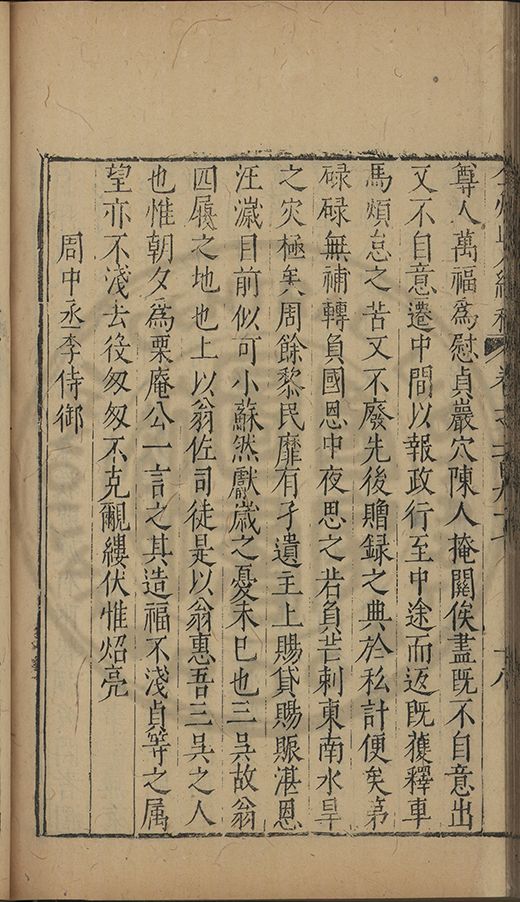 尊人萬福爲慰貞巖穴陳人掩關俟盡既不自意出
又不自意遷中間以報政行至中途而返既獲釋車
馬煩怠之苦又不廢先後贈録之典於私計便矣第
碌碌無補轉負國恩中夜思之若負芒刺東南水旱
之灾極矣周餘黎民靡有孑遺主上賜貸賜賑湛恩
汪濊目前似可小蘇然獻歲之憂未已也三吳故翁
四履之地也上以翁佐司徒是以翁惠吾三吳之人
也惟朝夕爲栗庵公一言之其造福不淺貞等之属
望亦不淺去役匆匆不克覼縷伏惟炤亮
周中丞李侍御